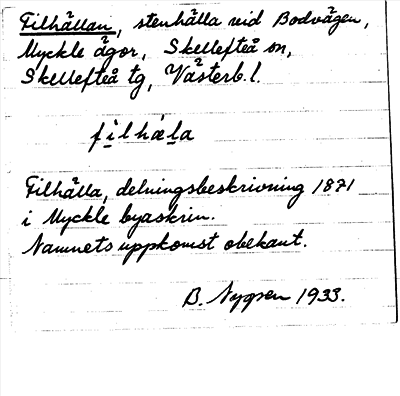 Filhällan, stenhälla vid Bodvägen,
Myckle ägor, Skellefteå sn,
Skellefteå tg, Västerb. l.
filhäla
Filhälla, delningsbeskrivning 1871
i Myckle byaskrin.
Namnets uppkomst obekant.
B. Nygren 1933.